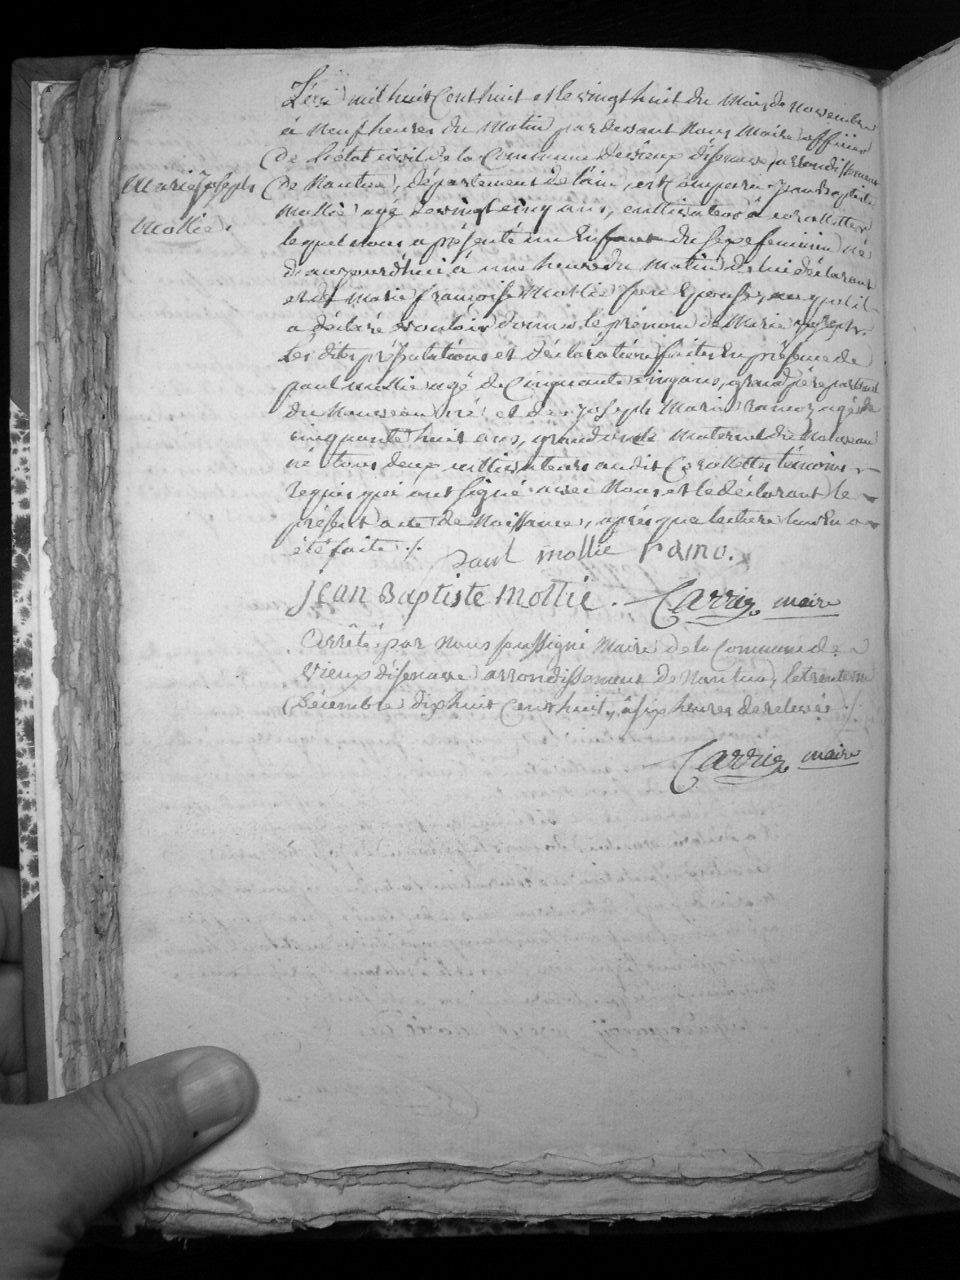 Marie joseph
Mollié.
L'an mil huit cent huit et le vingt huit du mois de novembre
à neuf heures du matin par devant nous maire officier
de l'état civil de la commune de vieux d'isenave, arrondissement
de Nantua, département de l'ain, est comparu jean baptiste
mollié agé de vingt cinq ans, cultivateur à
lequel nous a présenté un Enfant du sexe feminin né
d'aujourd'hui à une heure du matin de lui déclarant
et de marie françoise mollié son Epouse, auquel il
a déclaré vouloir donner le prénom de Marie joseph.
Les dites présentations et déclaration faites En présence de
paul mollié agé de cinquante cinq ans, grand père paternel
du nouveau né et de joseph Marie Ramoz agé de
cinquante huit ans, grand oncle maternel du nouveau
né tous deux cultivateurs audit témoins
requis qui ont signé avec nous et le déclarant le
présent acte de naissance, après que lecture leur En a
été faite ./.
paul mollie ramo.
jean Baptiste Mollie. Carrier maire
Arrêté par nous soussigné maire de la Commune de
vieux d'isenave arrondissement de nantua, le trente un
Décembre dix huit cent huit, à six heures de relevée ./.
Carrier maire